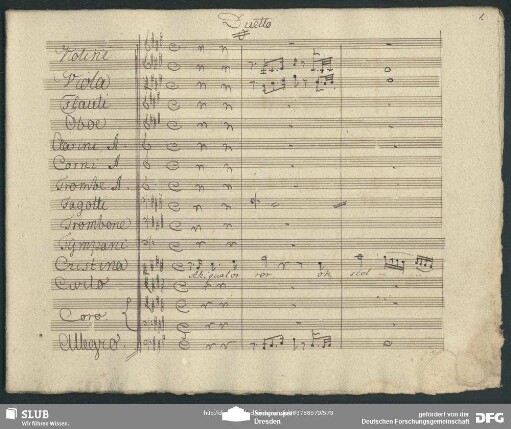 Duetto
1
Violini
Viola
Flauti
Oboe
Clarini A
Corni A
Trombe A.
Fagotti
Trombone
Tympani
Cristina
Ah qual or ror oh ciel
Carlo
Coro.
Allegro
SLUB
Wir führen Wissen.
Dresden
gefördert von der
Deutschen Forschungsgemeinschaft
DFG